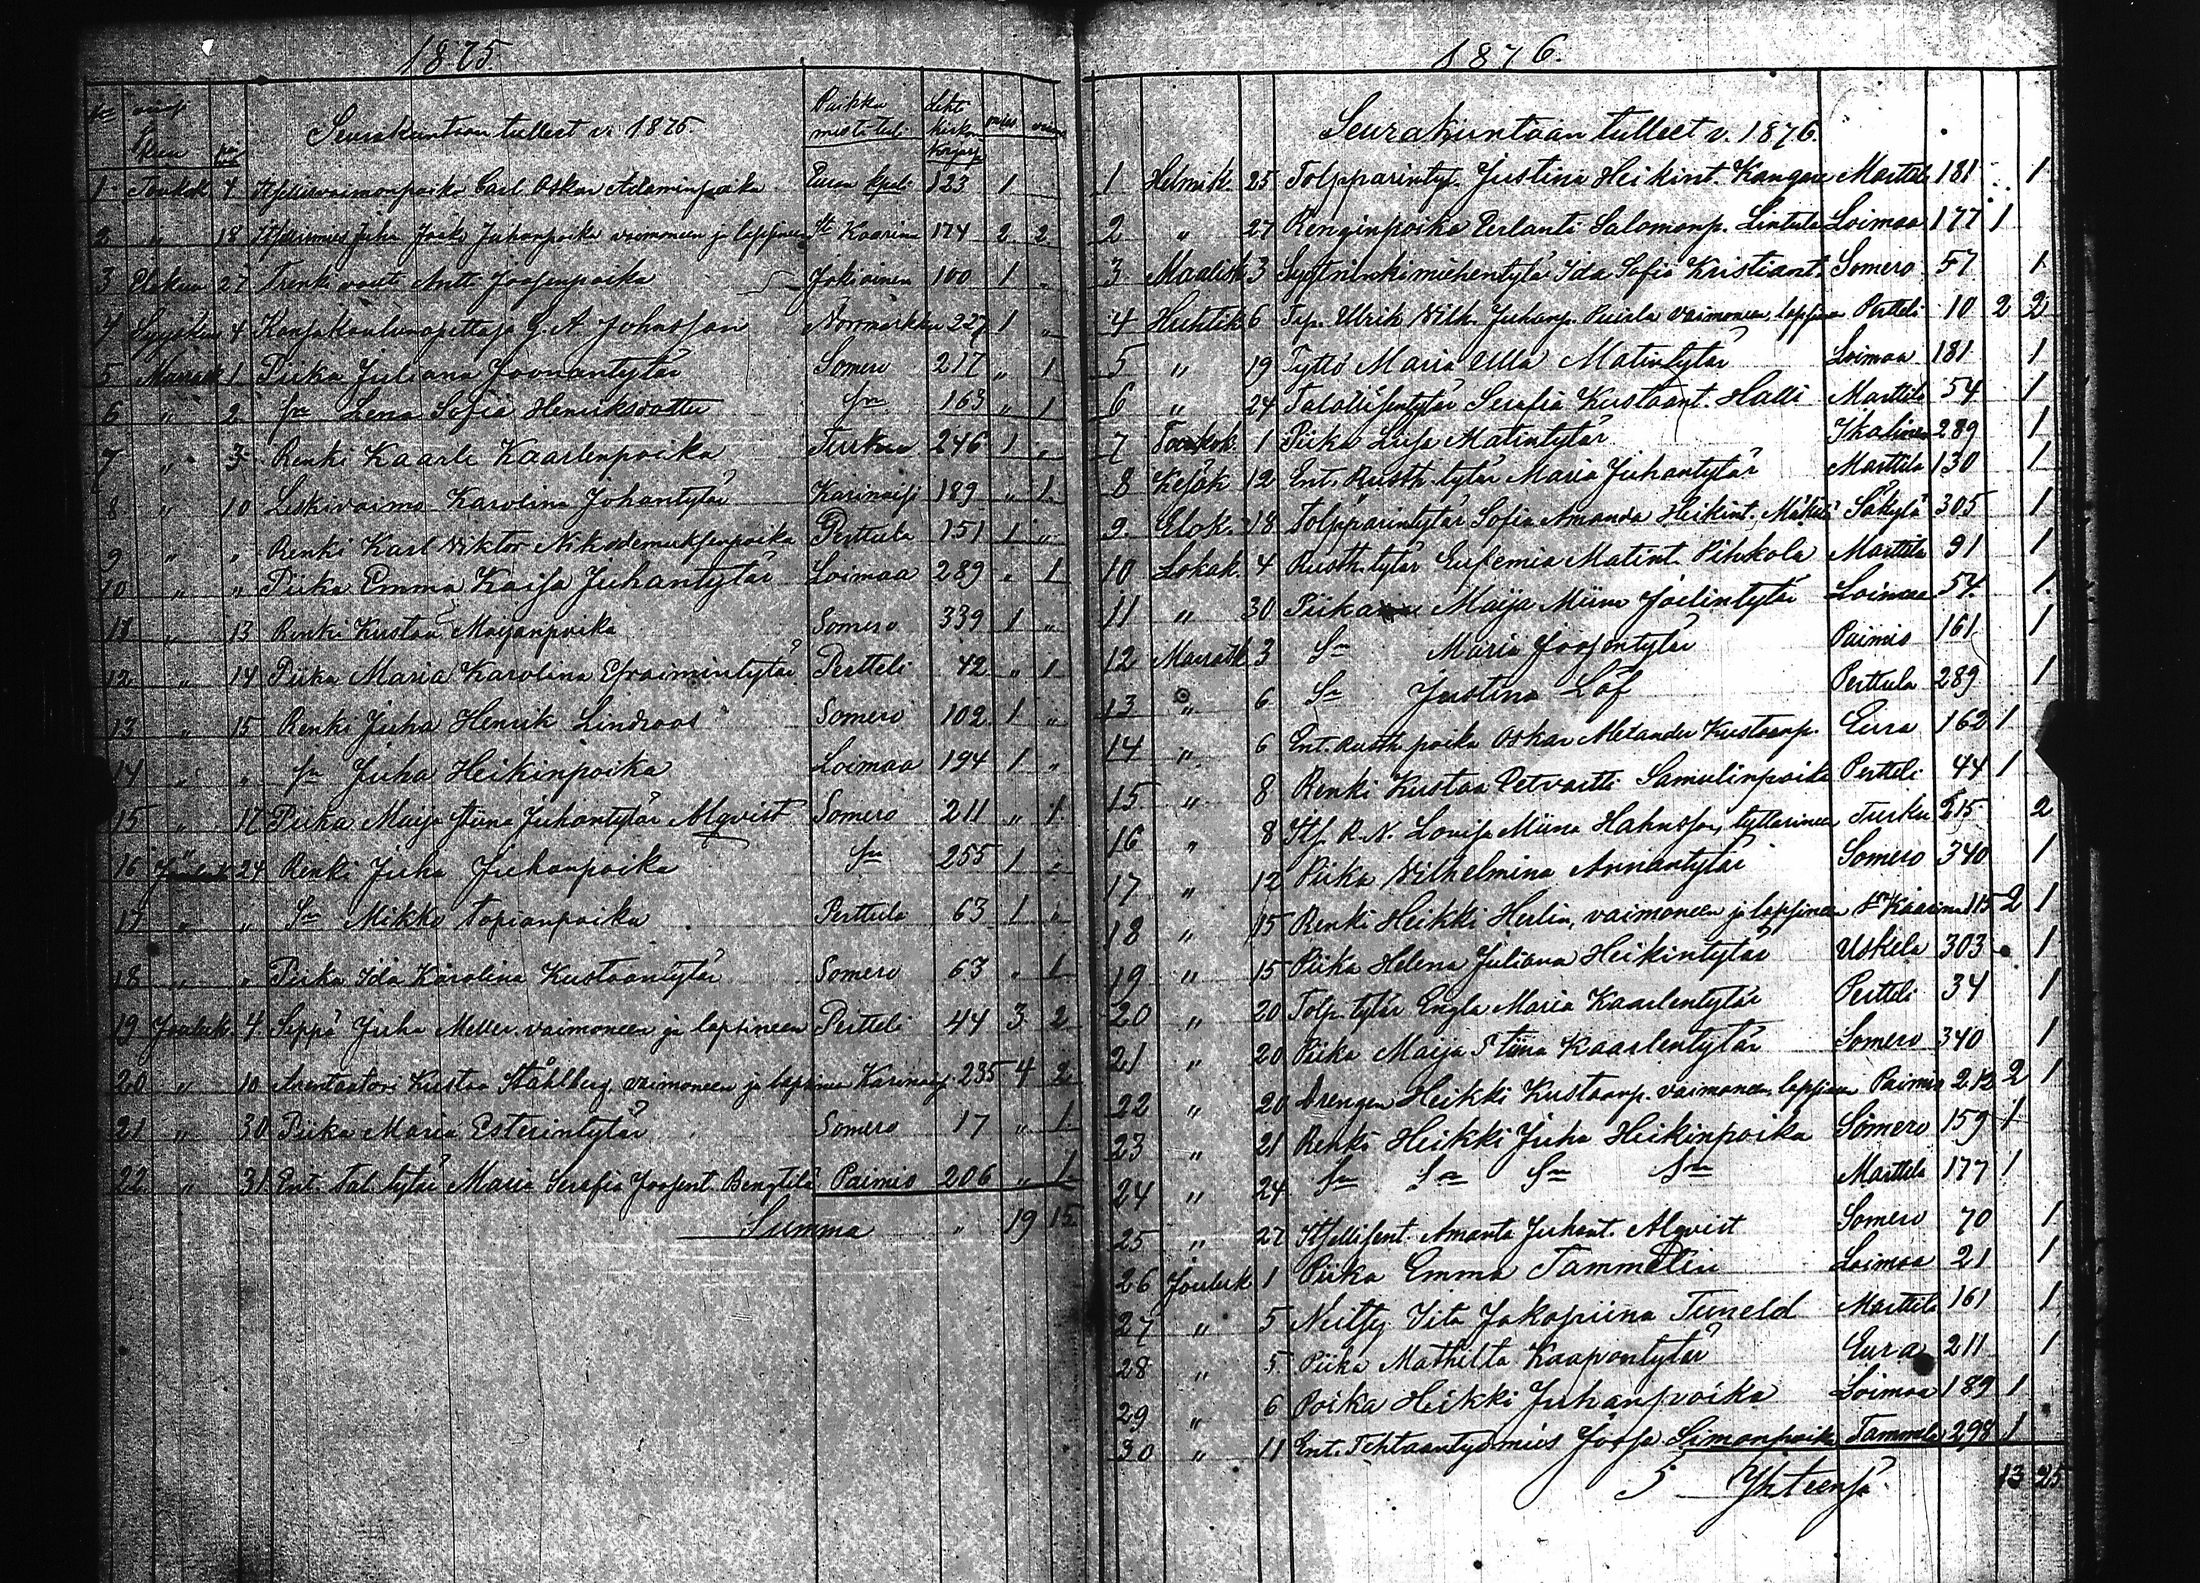 1875.
Seurakuntaan tulleet v. 1875.
Paikka mistä tuli
1 Toukok 4 Itsellisvaimonpoika Carl Oskar Adaminpoika 123 1
2 " 18 Juha Jaakk Juhanpoika vaimoneen ja lapsineen St Kaarina 174 2 2
3 27 Renki vouti Antti Joosenpoika Jokioinen 100 1 "
4 Syysku 4 Kansakoulunopettaja G. A. Johnsson Norrmarkku 227 1 "
5 Marrask 1 Piika Juliana Joonantytär Somero 217 " 1
6 " 2 sn Lena Sofia Henriksdotter sn 163 " 1
7 " 3 Renki Kaarle Kaarlenpoika Turku 246 1 "
8 " 10 Leskivaimo Karolina Johantytär Karinaisi 189 " 1
9 " " Renki Karl Viktor Nikodemuksenpoika Perttula 151 1 "
10 " " Piika Emma Kaisa Juhantytär Loimaa 289 " 1
11 " 13 Renki Kustaa Maijanpoika Somero 339 1 "
12 " 14 Piika Maria Karolina Efraimintytär Pertteli 42 " 1
13 " 15 Renki Juha Henrik Lindroos Somero 102 1 "
14 " " sn Juha Heikinpoika Loimaa 194 1 "
15 " 17 Piika Maija Stina Juhantytär Alqvist Somero 211 " 1
16 24 Renki Juha Juhanpoika sn 255 1 "
17 " " Sn Mikko Topianpoika Perttula 63 1 "
18 " " Piika Ida Karolina Kustaantytär Somero 63 " 1
19 Jouluk 4 Seppä Juha Meller vaimoneen ja lapsineen Pertteli 44 3 2
20 " 10 Arentaatori Kustaa Ståhlberg vaimoneen ja lapsineen Karinaisi 235 4 2
21 " 30 Piika Maria Esterintytär Somero 17 " 1
22 " 31 Ent. tal. tytär Maria Serafia Joosent. Bengtilä Paimio 206 " 1
Summa " 19 15
1876.
Seurakuntaan tulleet v. 1876.
1 Helmik. 25 Tolpparintyt. Justina Heikint. Kangare Marttila 181 1
2 " 27 Renginpoika Perlanti Salomonp. Lintula Loimaa 177 1
3 Maalisk 3 Ida Sofia Kristiant. Somero 57 1
4 Huhtik 6 Ulrik Wilh. Juhanp. Puisla vaimoneen, lapsineen Pertteli 10 2 2
5 " 19 Tyttö Maria Ulla Matintytär Loimaa 181 1
6 " 24 Talollisentytär Serafia Kustaant. Halli Marttila 54 1
7 Toukok. 1 Piika Lisa Matintytär Ikalinen 289 1
8 Kesäk 12 Ent. Rusth. tytär Maria Juhantytär Marttila 130 1
9. Elok. 18 Tolpparintytär Sofia Amanda Heikint. Mäkilä Säkylä 305 1
10 Lokak. 4 Rusth. tytär Eufemia Matint. Pihkola Marttila 91 1
11 " 30 Piika Maija Miina Joelintytär Loimaa 54. 1.
12 Marrask 3 Sn Maria Joosentytär Paimio 161 1
13 " 6 Sn Justina Löf Perttula 289 1
14 " 6 Ent. Rusth. poika Oskar Alexander Kustaanp. Eura 162 1
15 " 8 Renki Kustaa Petvartti Samulinpoika Pertteli 44 1
16 " 8 Its. R. N. Lovisa Miina Hahnsson, tyttärineen Turku 215 2
17 " 12 Piika Wilhelmina Annantytär Somero 340 1
18 " 15 Renki Heikki Herlin, vaimoneen ja lapsineen Sn Kaarina 115 2 1
19 " 15 Piika Helena Juliana Heikintytär Uskela 303 1
20 " 20 Tolp. tytär Engla Maria Kaarlentytär Pertteli 34 1
21 " 20 Piika Maija Stiina Kaarlentytär Somero 340 1
22 " 20 Drengen Heikki Kustaanp. vaimoneen, lapsineen Paimio 212 2 1
23 " 21 Renki Heikki Juha Heikinpoika Somero 159 1
24 " 24 Sn Sn Sn Sn Marttila 177 1
25 " 27 Itsellisent. Amanta Juhant. Alqvist Somero 70 1
26 Jouluk 1 Piika Emma Tammelin Loimaa 21 1
27 " 5 Neitsy Iita Jakopiina Tuneld Marttila 161 1
28 " 5. Piika Mathilta Kaapontytär Eura 211 1
29 " 6 Poika Heikki Juhanpoika Loimaa 189 1
30 " 11 Ent. Tehtaantyömies Joosa Simonpoika Tammela 298 1
Yhteensä 13 25